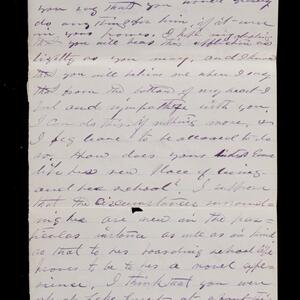 you say that you would gladly
do any thing for him, if it were
in your power. I hope
that you will bear this affliction as
lightly as you may, and I know
that you will believe me when I say
that from the bottom of my heart I
feel and sympathize with you
I can do this, if nothing more, &
I beg leave to be allowed to do
so. How does your
like her new place of living
and her school. I suppose
that the circumstances surround
ing her are new in the par-
ticular instance as well as in kind
as that to her boarding school life
proves to be to her a novel expe
rience. I think that you were